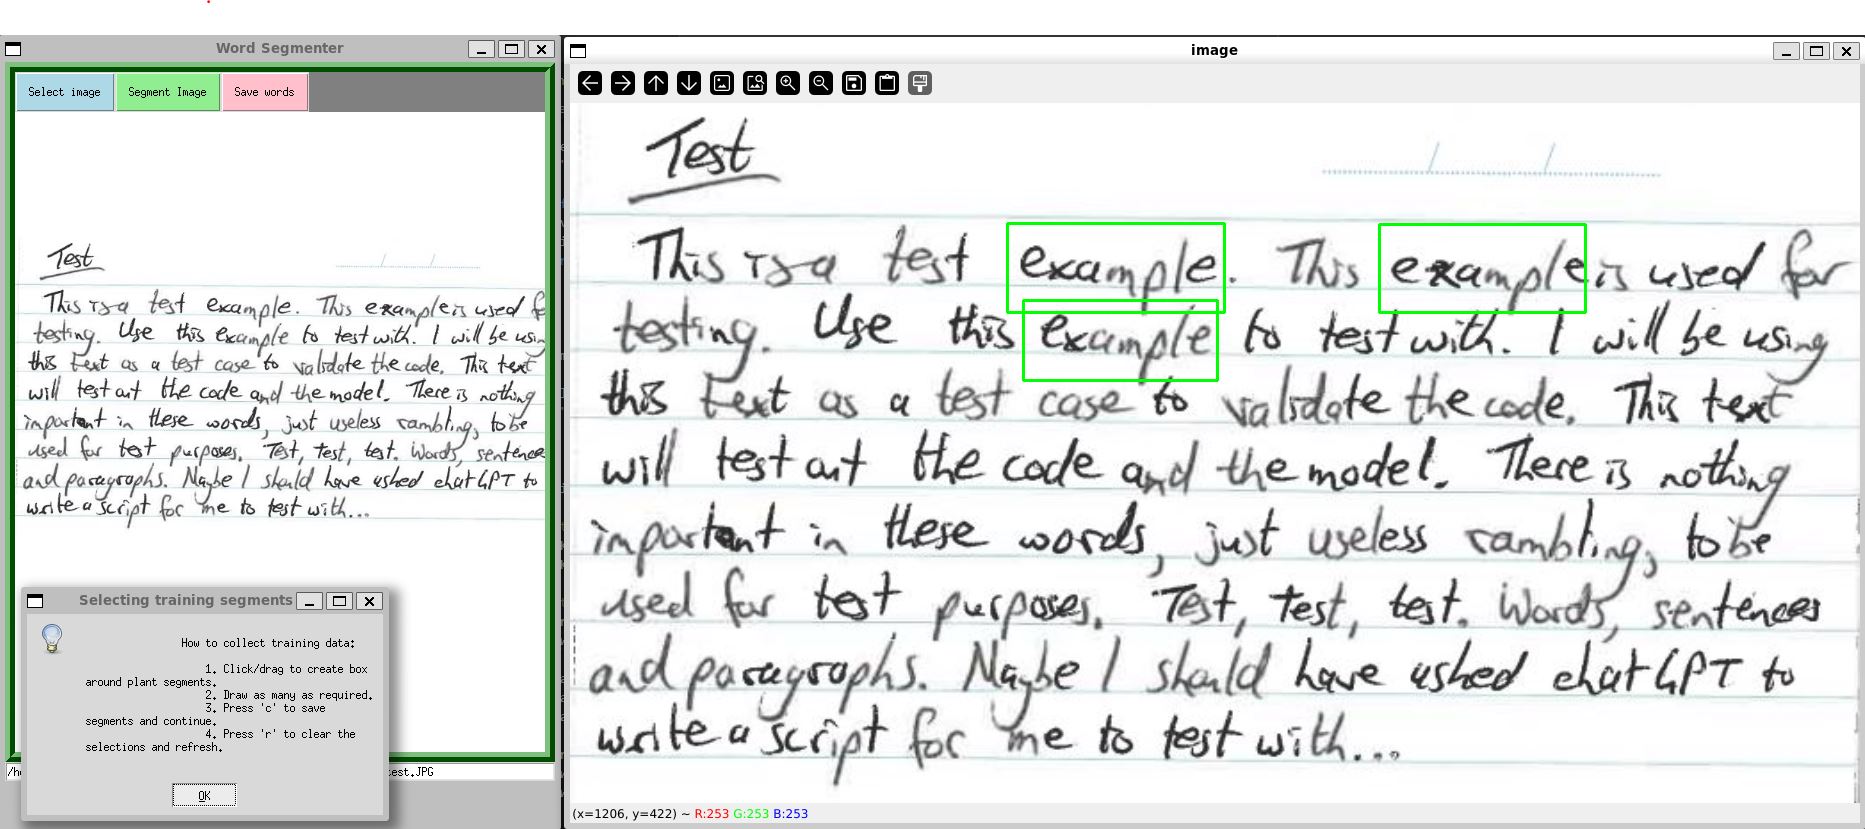 Word Segmenter
Select image
Segment Image
Save words
Test
This is a test example. This example is used fo
testing. Use this example to test with. I will be usin
this text as a test case to validate the code. This text
will test out the code and the model. There is nothing
important in these words, just useless rambling, to be
used for test purposes. Test, test, test. Words, sentences
and paragraphs. Maybe I should have ushed chatGPT to
write a script for me to test with...
/h
est.JPG
Selecting training segments
How to collect training data:
1. Click/drag to create box
around plant segments.
2. Draw as many as required.
3. Press 'c' to save
segments and continue.
4. Press 'r' to clear the
selections and refresh.
OK
image
Test
This is a test example. This example is used for
testing. Use this example to test with. I will be using
this text as a test case to validate the code. This text
will test out the code and the model. There is nothing
important in these words, just useless rambling, to be
used for test purposes. Test, test, test. Words, sentences
and paragraphs. Maybe I should have ushed chatGPT to
write a script for me to test with...
(x=1206, y=422) ~ R:253 G:253 B:253